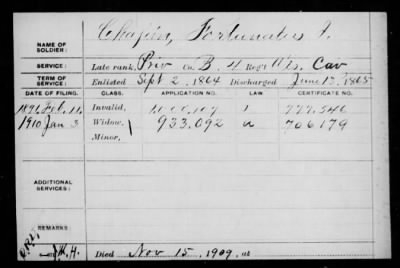 Chapin, Fortunatus F.
NAME OF SOLDIER:
SERVICE: Late rank, Priv Co. B, 4 Reg't Wis. Cav
TERM OF SERVICE: Enlisted Sept 2, 1864 Discharged June 17, 1865
DATE OF FILING. CLASS. APPLICATION NO. LAW CERTIFICATE NO.
1891 Feb. 11. Invalid, 777.546
1910 Jan 3 Widow, 933.092 706179
Minor,
ADDITIONAL SERVICES:
REMARKS:
Died Nov 15, 1909, at